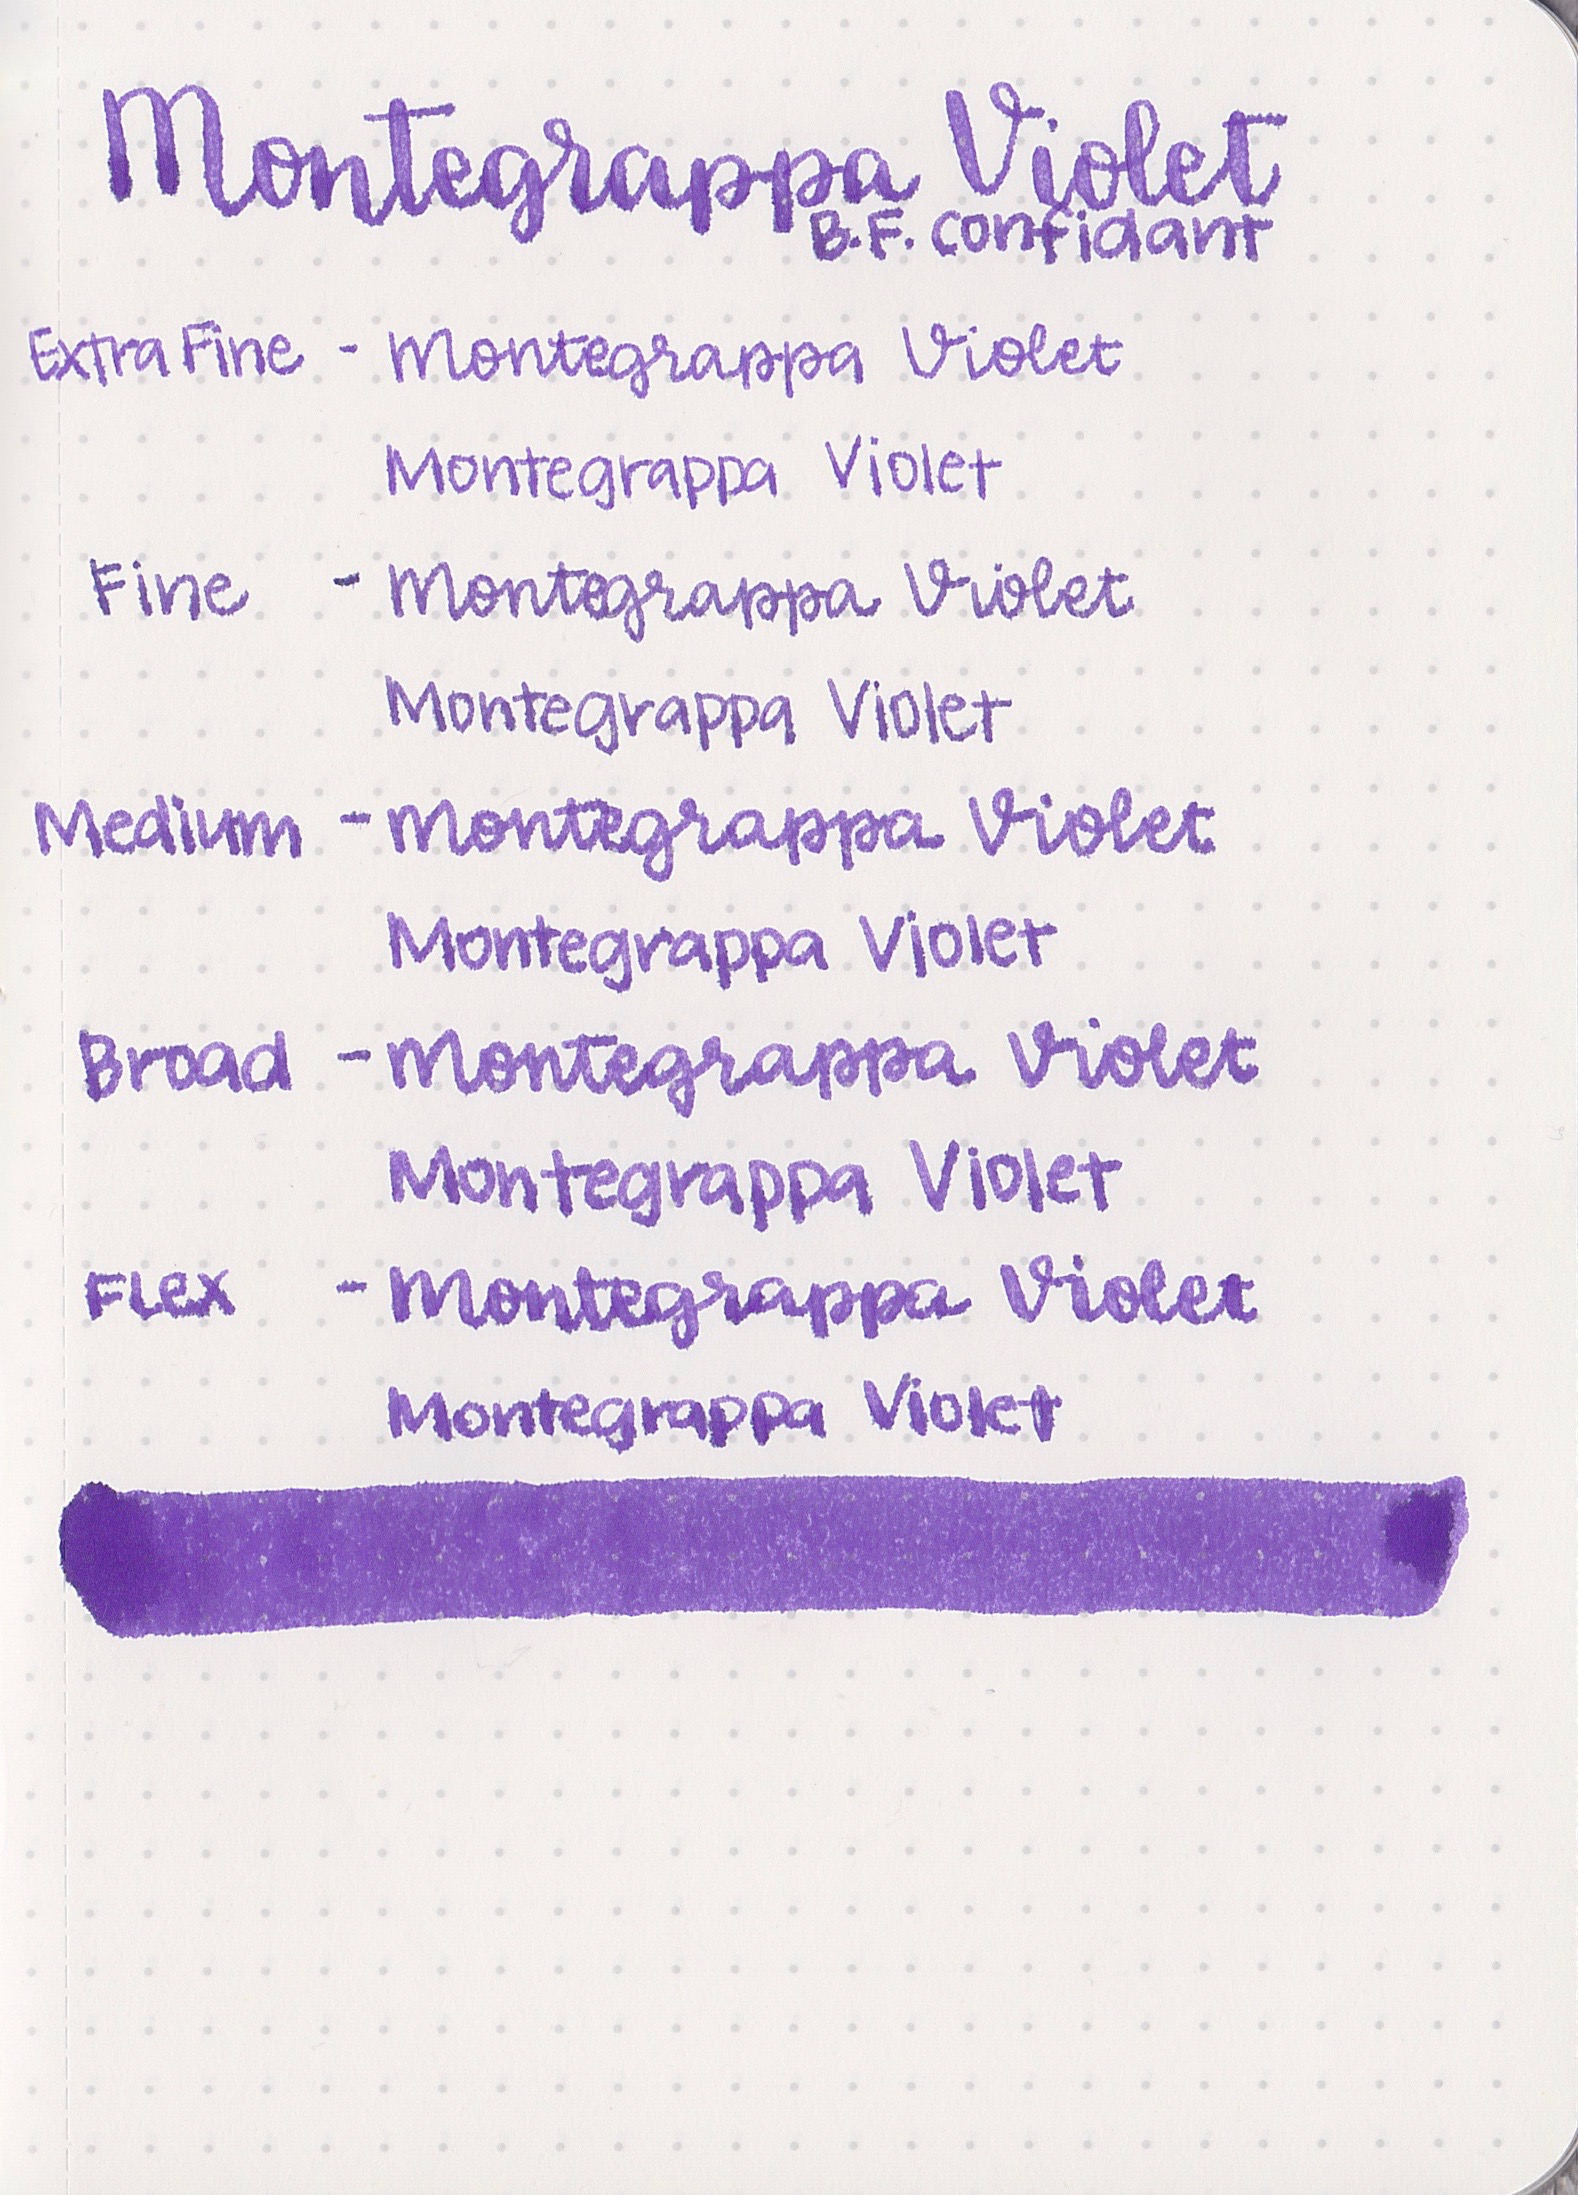 Montegrappa Violet
B.F. Confidant
Extra Fine - Montegrappa Violet
Montegrappa Violet
Fine - Montegrappa Violet
Montegrappa Violet
Medium - Montegrappa Violet
Montegrappa Violet
Broad - Montegrappa Violet
Montegrappa Violet
Flex - Montegrappa Violet
Montegrappa Violet